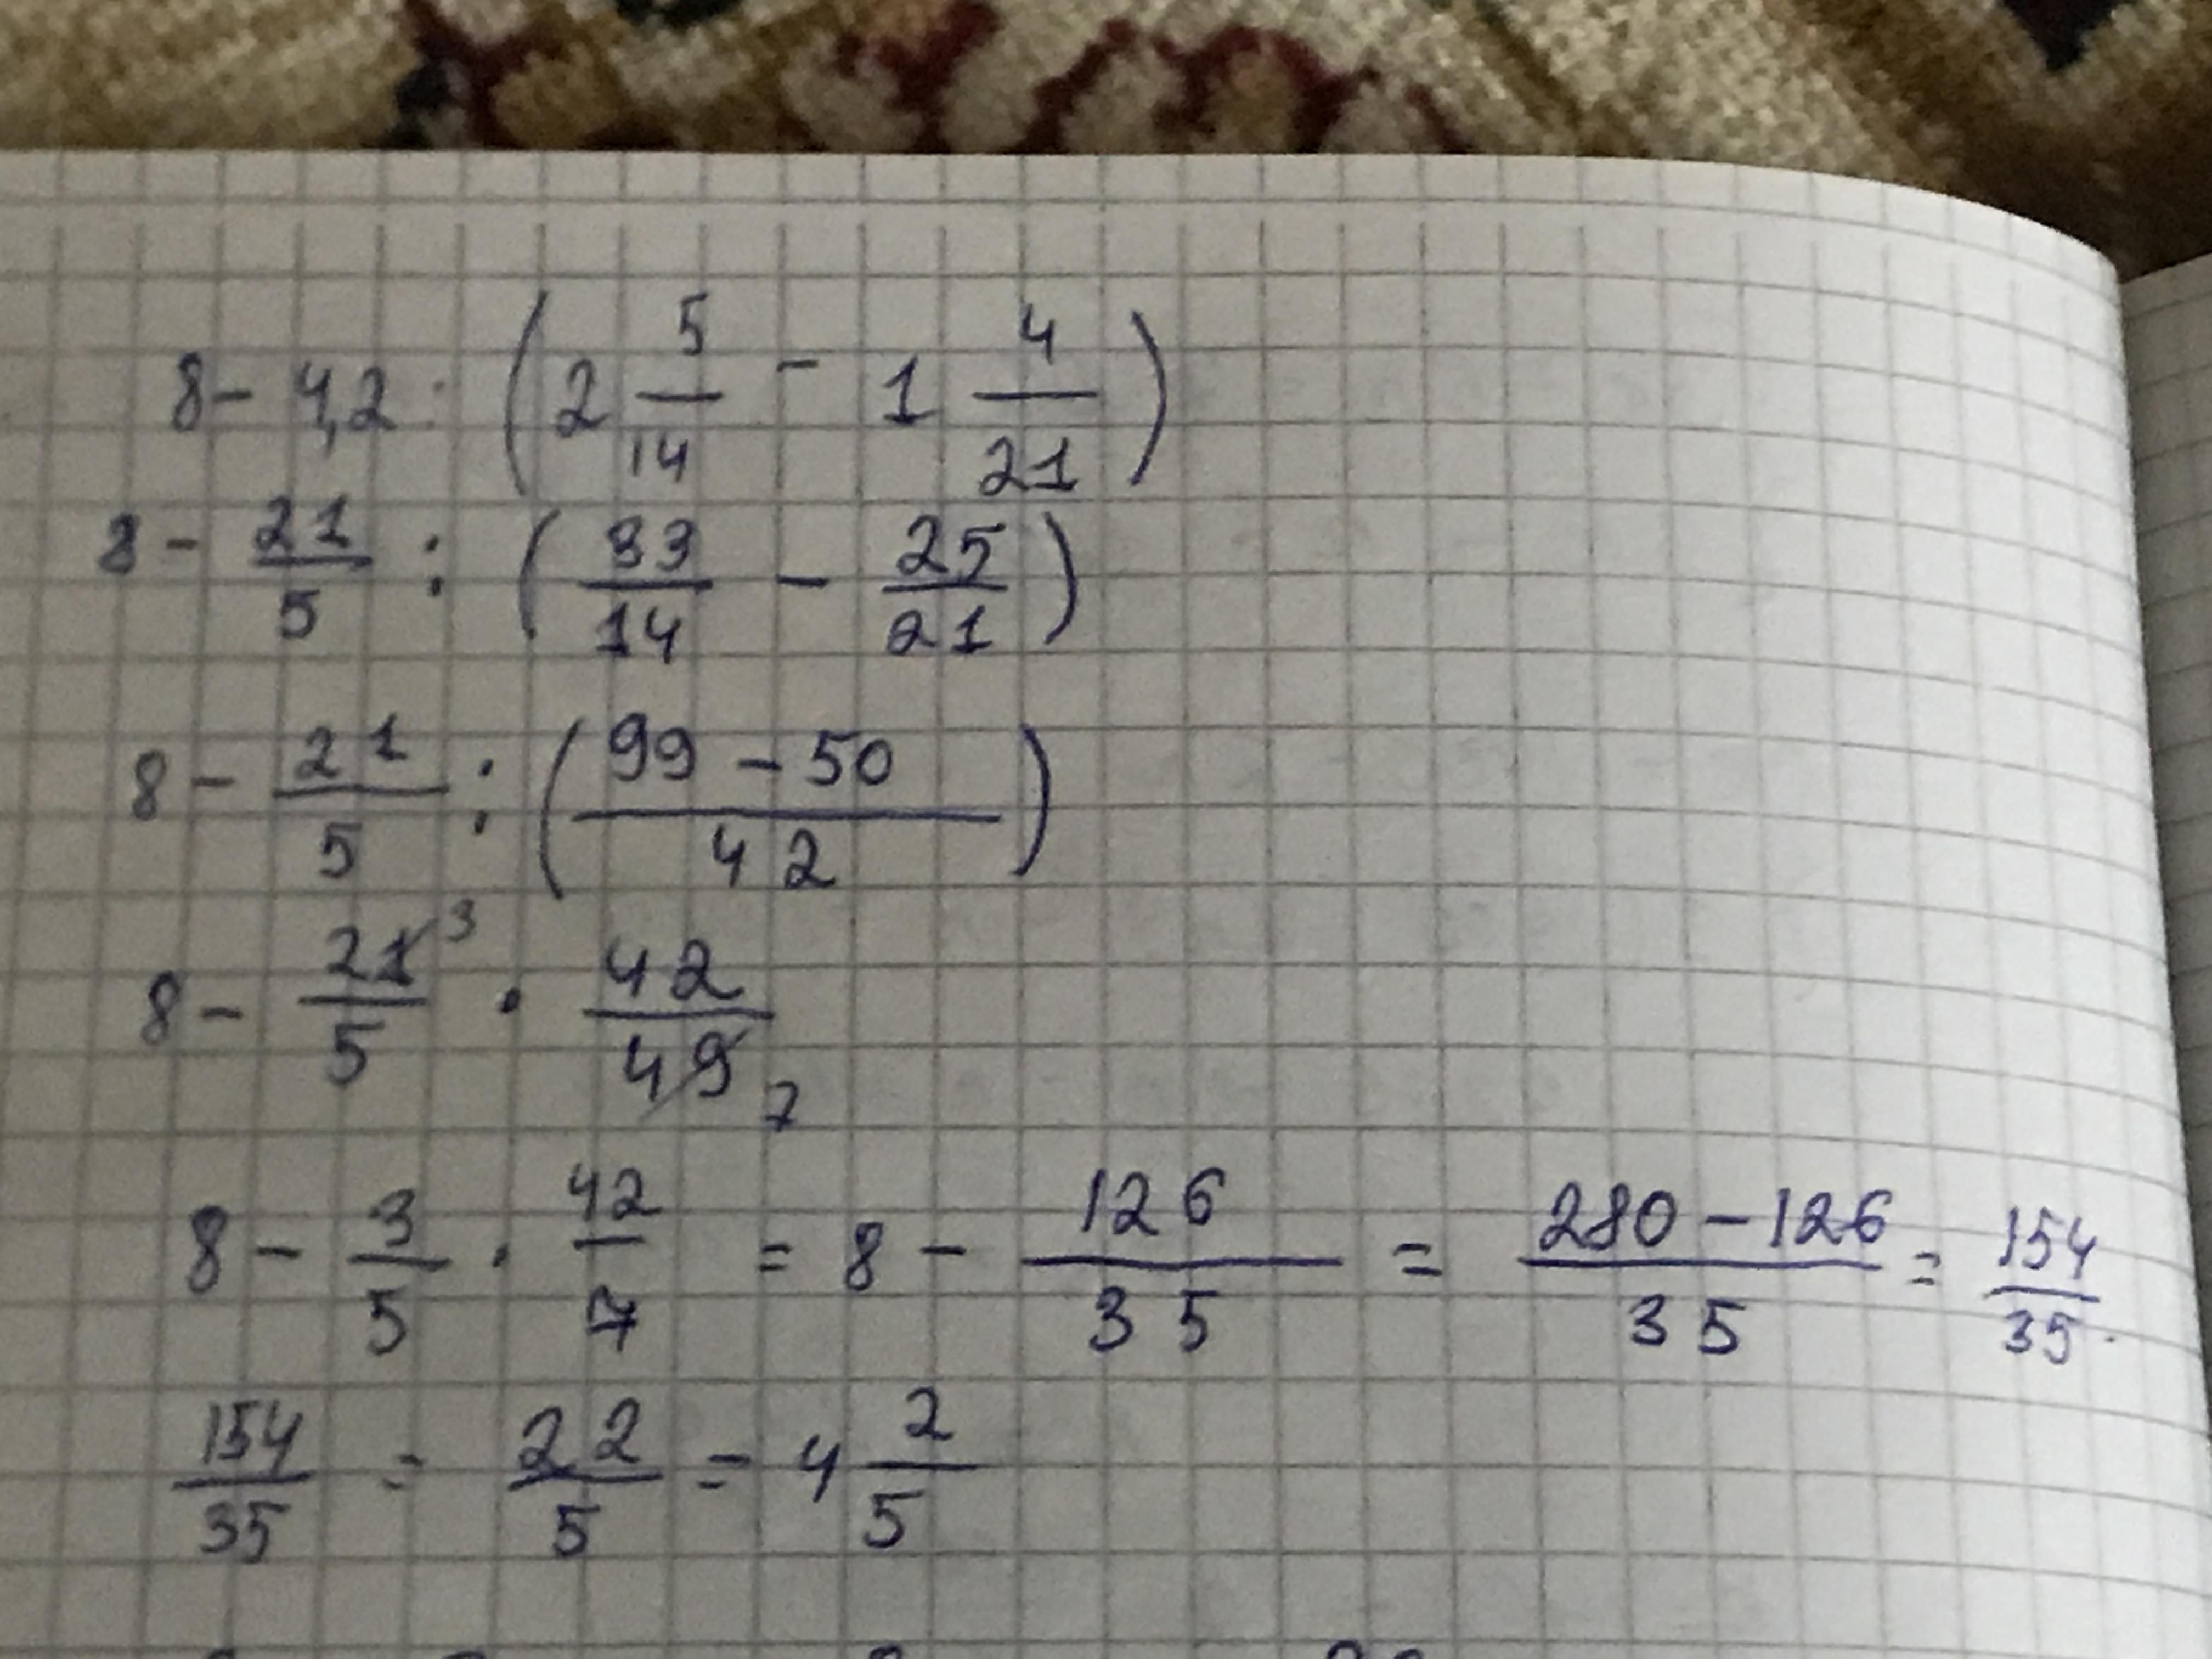 8 - 4,2 : (2 5/14 - 1 4/21)
8 - 21/5 : (33/14 - 25/21)
8 - 21/5 : (99 - 50/42)
8 - 21/5 3 · 42/49 7
8 - 3/5 · 42/7 = 8 - 126/35 = 280 - 126/35 = 154/35.
154/35 = 22/5 = 4 2/5